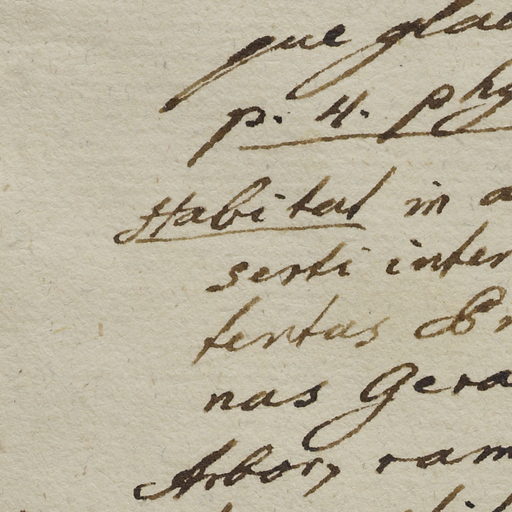 que glae
p. 4. phy
Habitat in a
serti inter
tentas Br
nas Gera
Arbor, ram